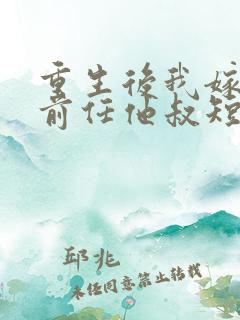 重生後我嫁
前任他叔短
邱兆
未任同意禁止转载